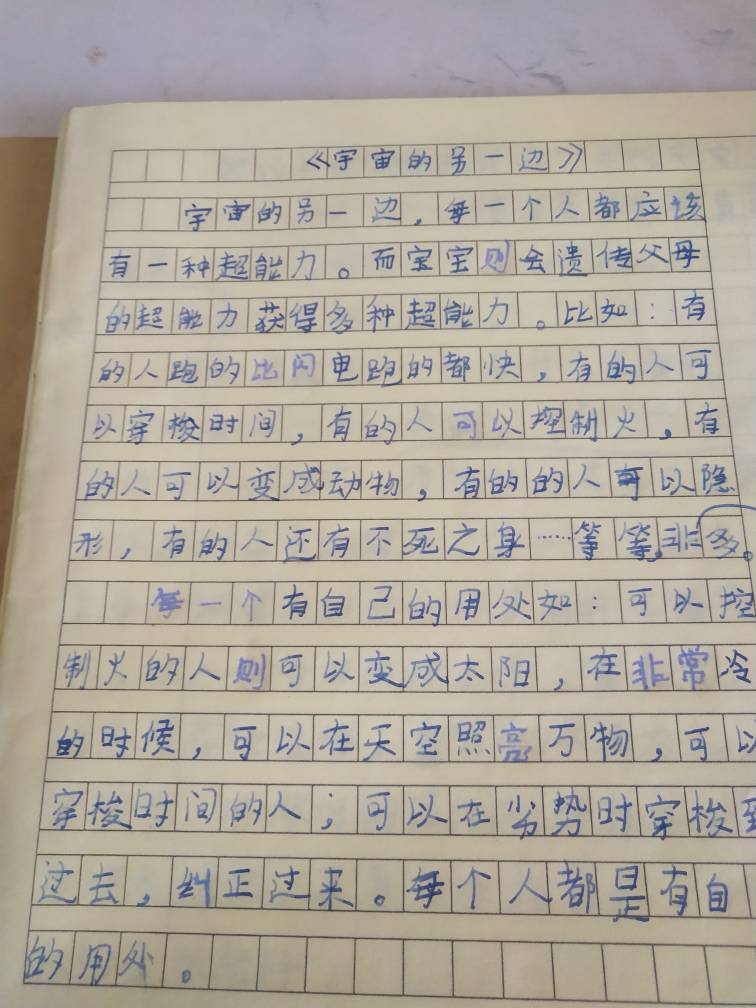 《宇宙的另一边》
宇宙的另一边，每一个人都应该
有一种超能力。而宝宝则会遗传父母
的超能力获得多种超能力。比如：有
的人跑的比闪电跑的都快，有的人可
以穿梭时间，有的人可以控制火，有
的人可以变成动物，有的的人可以隐
形，有的人还有不死之身……等等，非多。
每一个有自己的用处如：可以控
制火的人则可以变成太阳，在非常冷
的时候，可以在天空照亮万物，可以
穿梭时间的人；可以在劣势时穿梭到
过去，纠正过来。每个人都是有自
的用处。